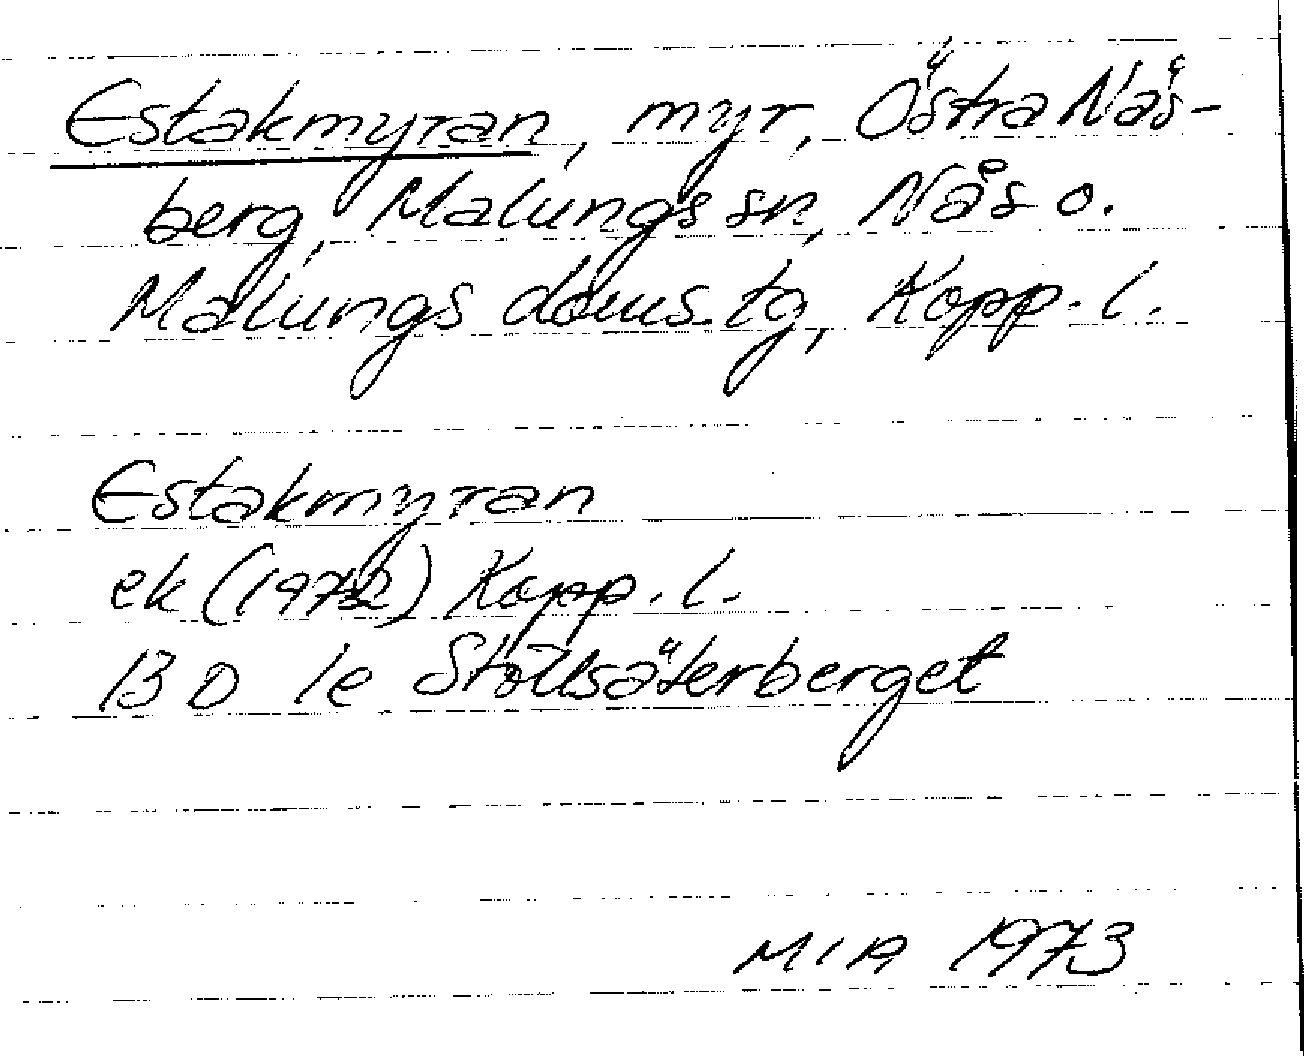 Estakmyran, myr, Östra Näs-
berg, Malungs sn, Nås o.
Malungs doms.tg, Kopp. l.
Estakmyran
ek (1972) Kopp. l.
13 D 1e Stöllsäterberget
MIA 1973